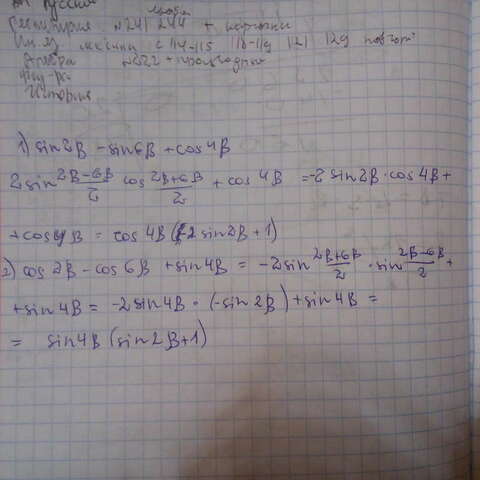 Русский
Геометрия №241 244 +
с 114-115 118-119 121 129
Алгебра №222 +
Физ-ра
История
1) sin2β - sin6β + cos4β
2sin (2β-6β)/2 cos (2β+6β)/2 + cos4β = -2sin2β·cos4β +
+ cos4β = cos4β(-2sin2β+1)
2) cos2β - cos6β + sin4β = -2sin (2β+6β)/2 · sin (2β-6β)/2 +
+ sin4β = -2sin4β · (-sin2β) + sin4β =
= sin4β (sin2β+1)